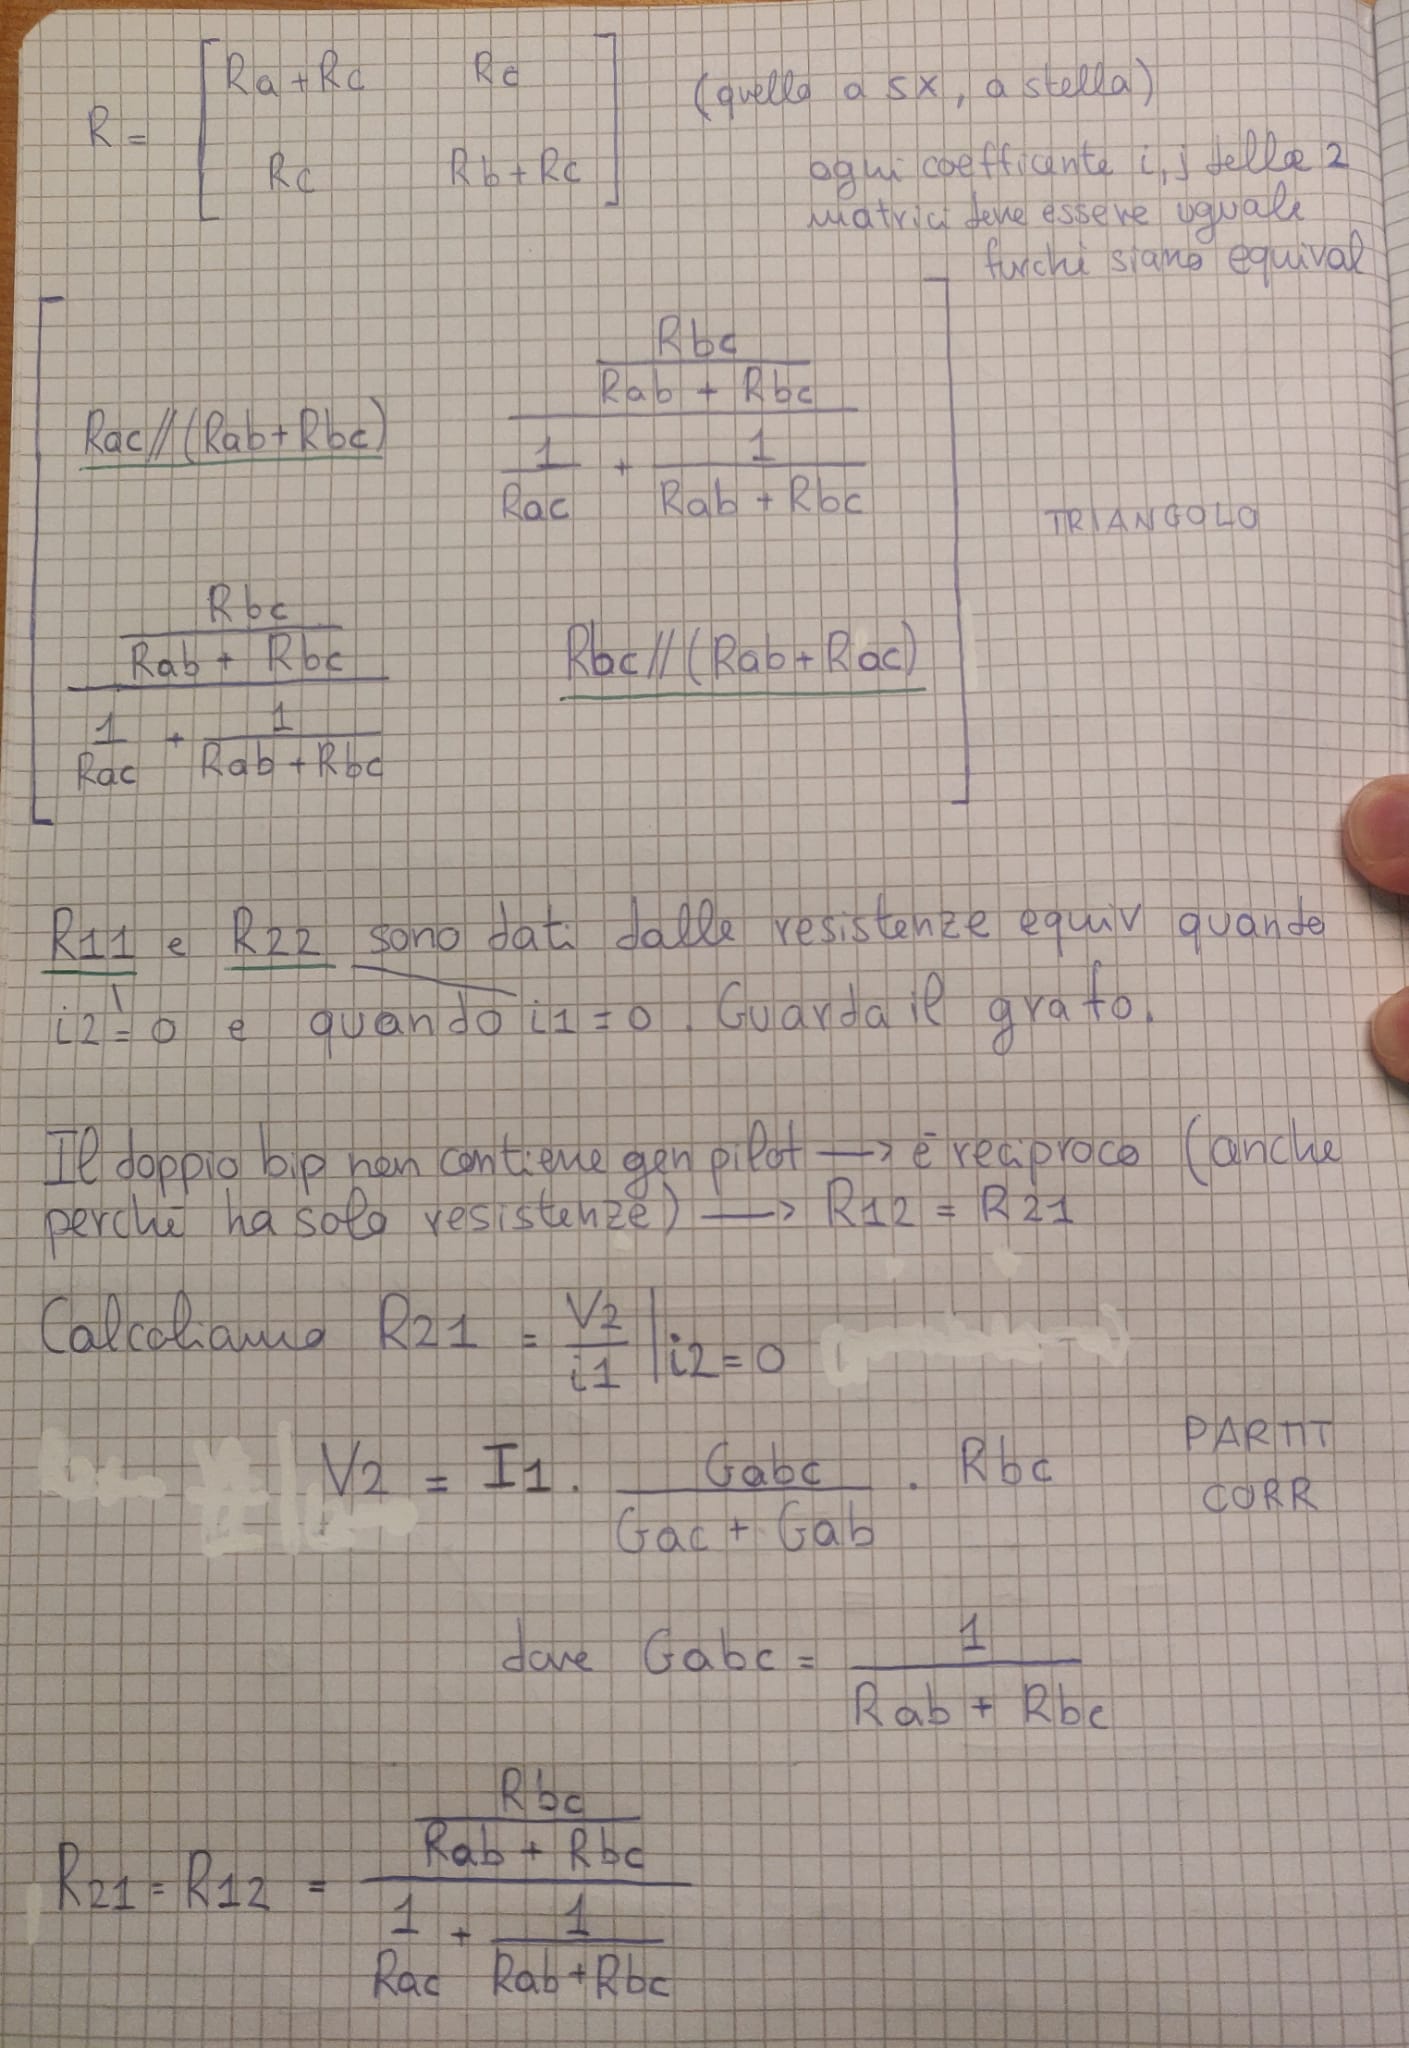 R = [ Ra + Rc   Rc
Rc   Rb + Rc ]
(quella a sx, a stella)
ogni coefficente i, j delle 2
matrici deve essere uguale
finchi siano equival
[ Rac // (Rab + Rbc)   (Rbc / (Rab + Rbc)) / (1/Rac + 1/(Rab + Rbc))
(Rbc / (Rab + Rbc)) / (1/Rac + 1/(Rab + Rbc))   Rbc // (Rab + Rac) ]
TRIANGOLO
R11 e R22 sono dati dalle resistenze equiv quando
i2 = 0 e quando i1 = 0. Guarda il grafo.
Il doppio bip non contiene gen pilot → è reciproco (anche
perché ha solo resistenze) → R12 = R21
Calcoliamo R21 = V2/i1 | i2 = 0
V2 = I1 · Gabc / (Gac + Gab) · Rbc
PARTIT
CORR
dove Gabc = 1 / (Rab + Rbc)
R21 = R12 = (Rbc / (Rab + Rbc)) / (1/Rac + 1/(Rab + Rbc))